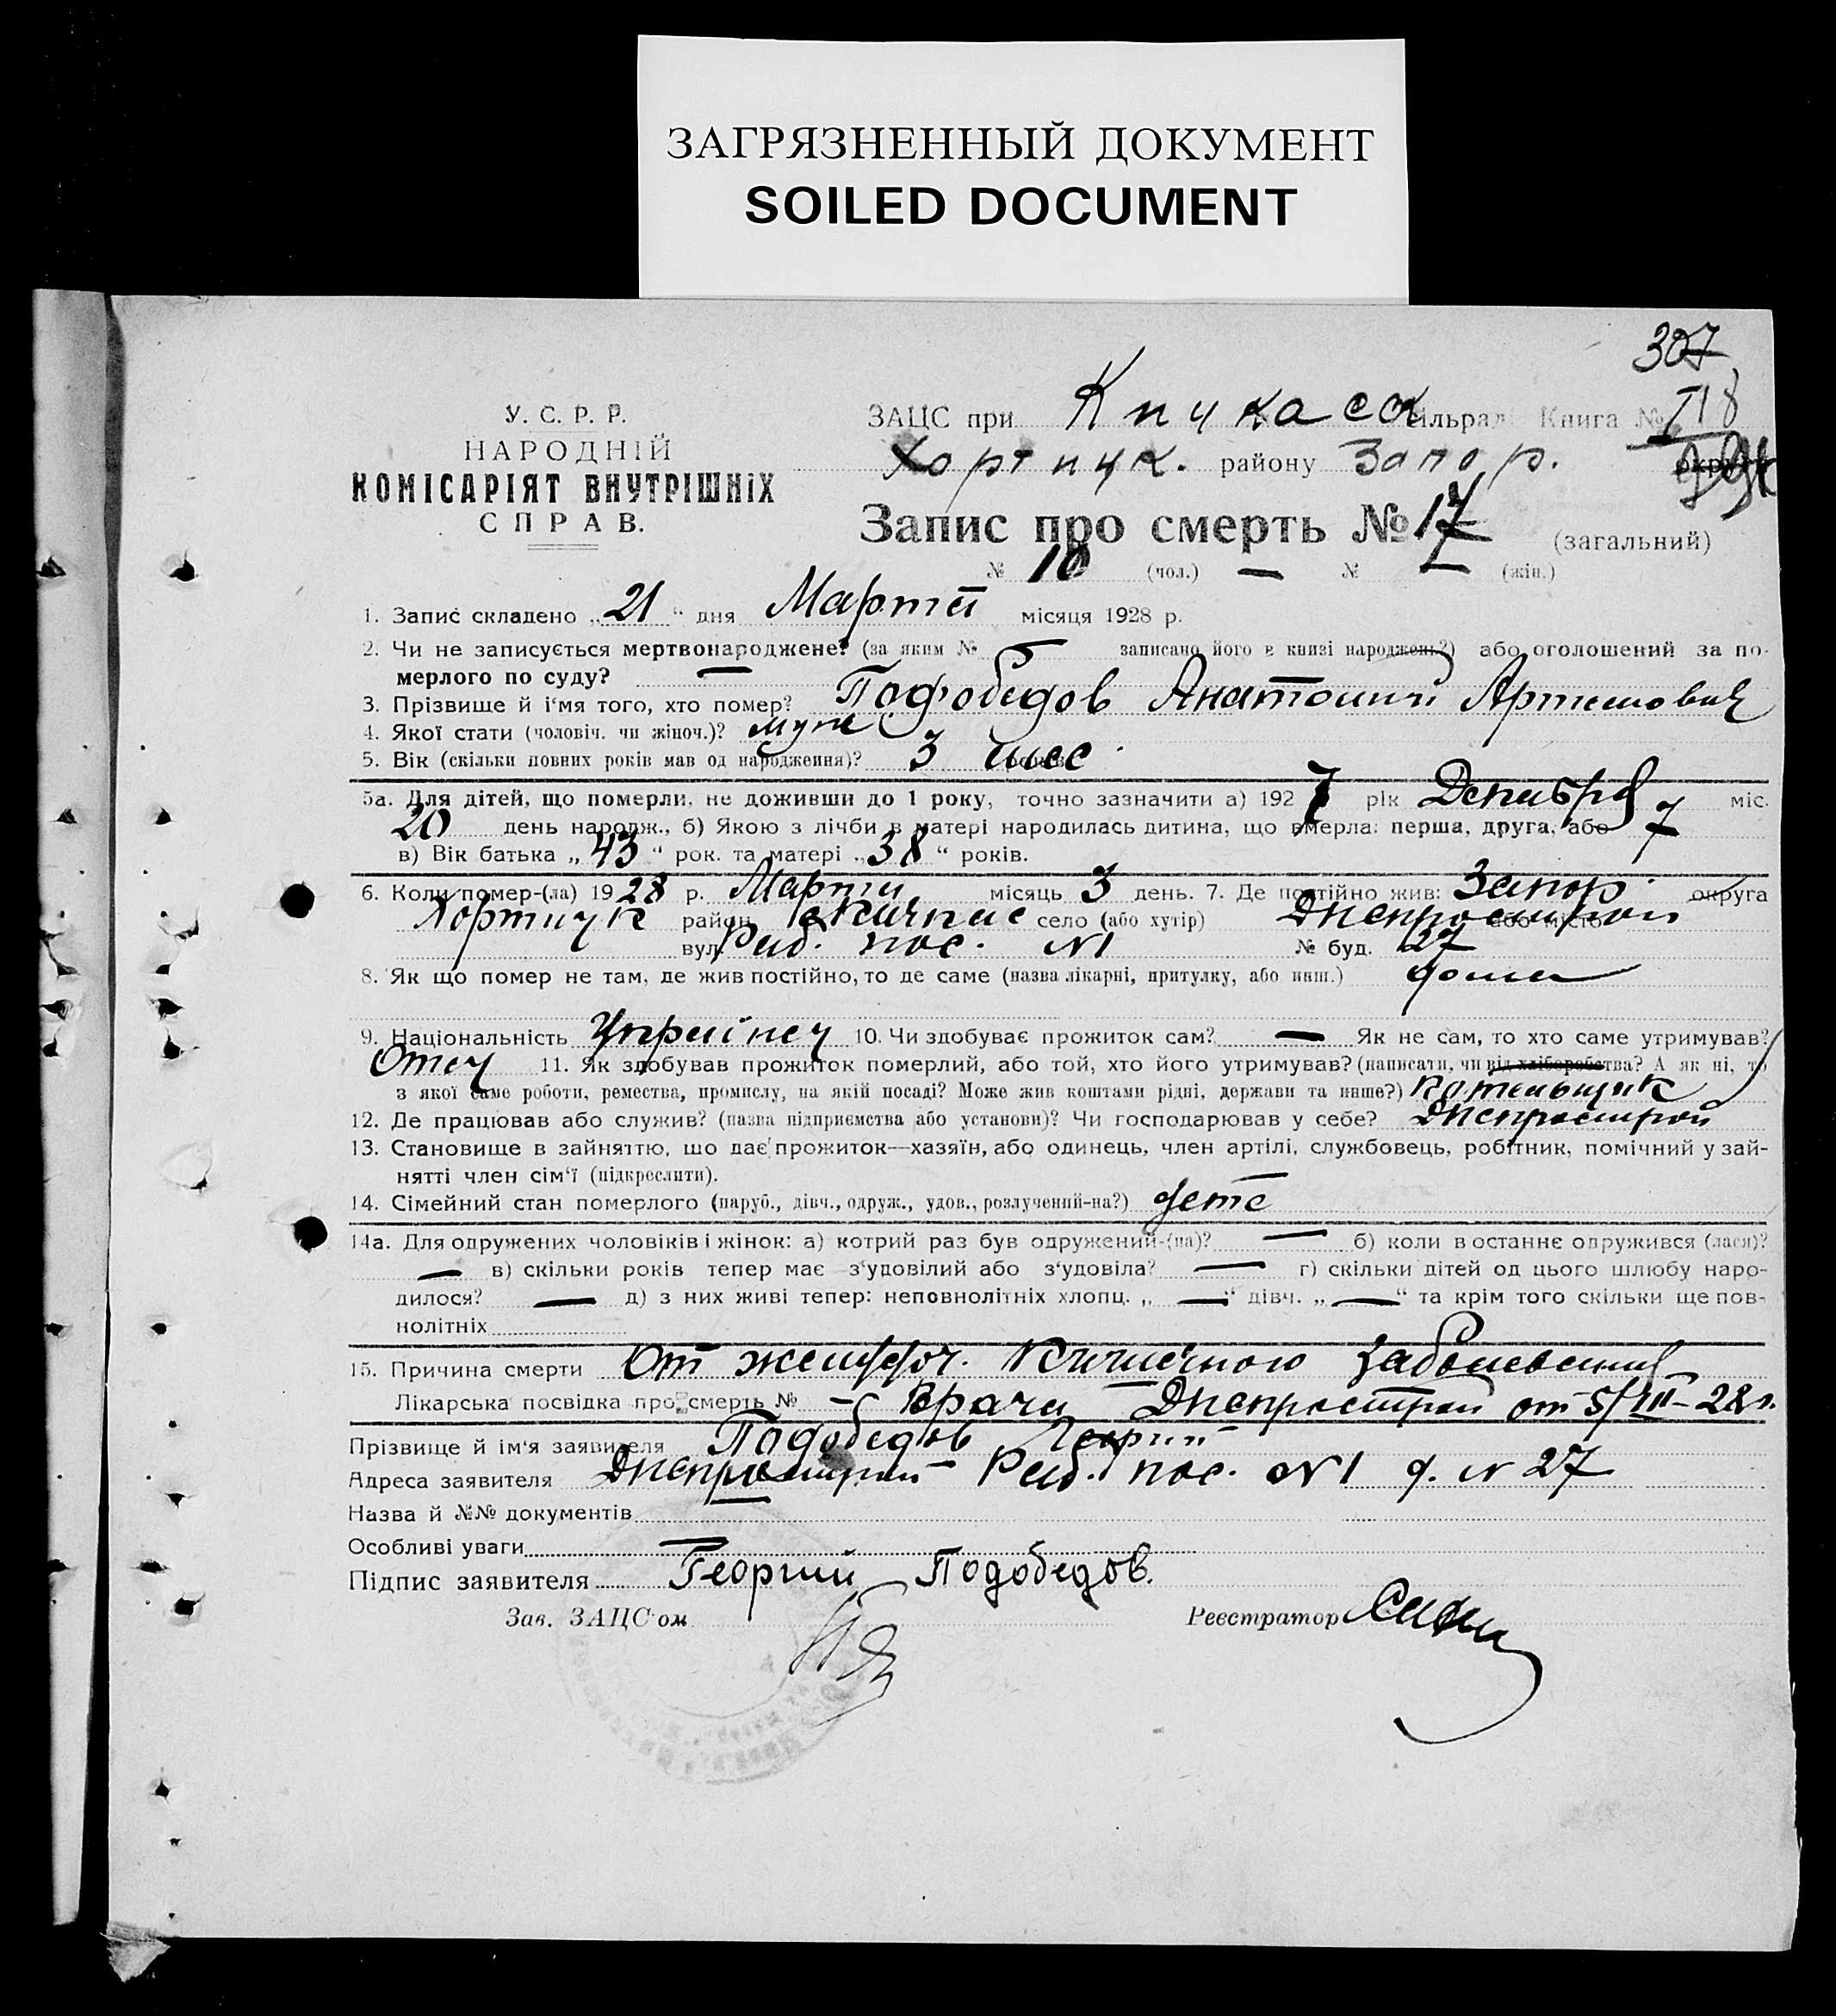 ЗАГРЯЗНЕННЫЙ ДОКУМЕНТ
SOILED DOCUMENT
307
У. С. Р. Р.
НАРОДНІЙ
КОМІСАРІЯТ ВНУТРІШНІХ
СПРАВ.
ЗАЦС при Кичкасс сільрад Книга №
Хортицк. району Запор. округи
Запис про смерть № 17 (загальний)
№ 10 (чол.) — № — (жін.)
1. Запис складено „ 21 “ дня Марта місяця 1928 р.
2. Чи не записується мертвонароджене? (за яким № — записано його в книзі народжень?) або оголошений за по-
мерлого по суду? —
3. Прізвище й ім'я того, хто помер? Подобедов Анатолий Артемович
4. Якої стати (чоловіч. чи жіноч.)? муж
5. Вік (скільки повних років мав од народження)? 3 мес
5а. Для дітей, що померли, не доживши до 1 року, точно зазначити а) 1927 рік Декабря міс.
20 день народж., б) Якою з лічби в матері народилась дитина, що вмерла: перша, друга, або 7
в) Вік батька „ 43 “ рок. та матері „ 38 “ років.
6. Коли помер-(ла) 1928 р. Марта місяць 3 день. 7. Де постійно жив: Запор. округа
Хортицк район Кичкас село (або хутір) Днепрострой або місто
вул. Раб. пос. №1 № буд. 27
8. Як що помер не там, де жив постійно, то де саме (назва лікарні, притулку, або инш.) дома
9. Національність Украінец 10. Чи здобуває прожиток сам? — Як не сам, то хто саме утримував?
Отец 11. Як здобував прожиток померлий, або той, хто його утримував? (написати, чи від хліборобства? А як ні, то
з якої саме роботи, ремества, промислу, на якій посаді? Може жив коштами рідні, держави та инше?) Котельщик
12. Де працював або служив? (назва підприємства або установи)? Чи господарював у себе? Днепрострой
13. Становище в зайняттю, що дає прожиток—хазяїн, або одинець, член артілі, службовець, робітник, помічний у зай-
нятті член сім'ї (підкреслити).
14. Сімейний стан померлого (паруб., дівч., одруж., удов., розлучений-на?) детс
14а. Для одружених чоловіків і жінок: а) котрий раз був одружений-(на)? — б) коли в останнє одружився (лася)?
— в) скільки років тепер має з'удовілий або з'удовіла? — г) скільки дітей од цього шлюбу наро-
дилося? — д) з них живі тепер: неповнолітніх хлопц. „ — “ дівч. „ — “ та крім того скільки ще пов-
нолітніх
15. Причина смерти От желудоч. Кишечного заболевания
Лікарська посвідка про смерть № — Врача Днепрострой от 5/III-28 г.
Прізвище й ім'я заявителя Подобедов Георгий
Адреса заявителя Днепрострой Раб. пос. №1 д. № 27
Назва й №№ документів —
Особливі уваги —
Підпис заявителя Георгий Подобедов.
Зав. ЗАЦС'ом Реєстратор